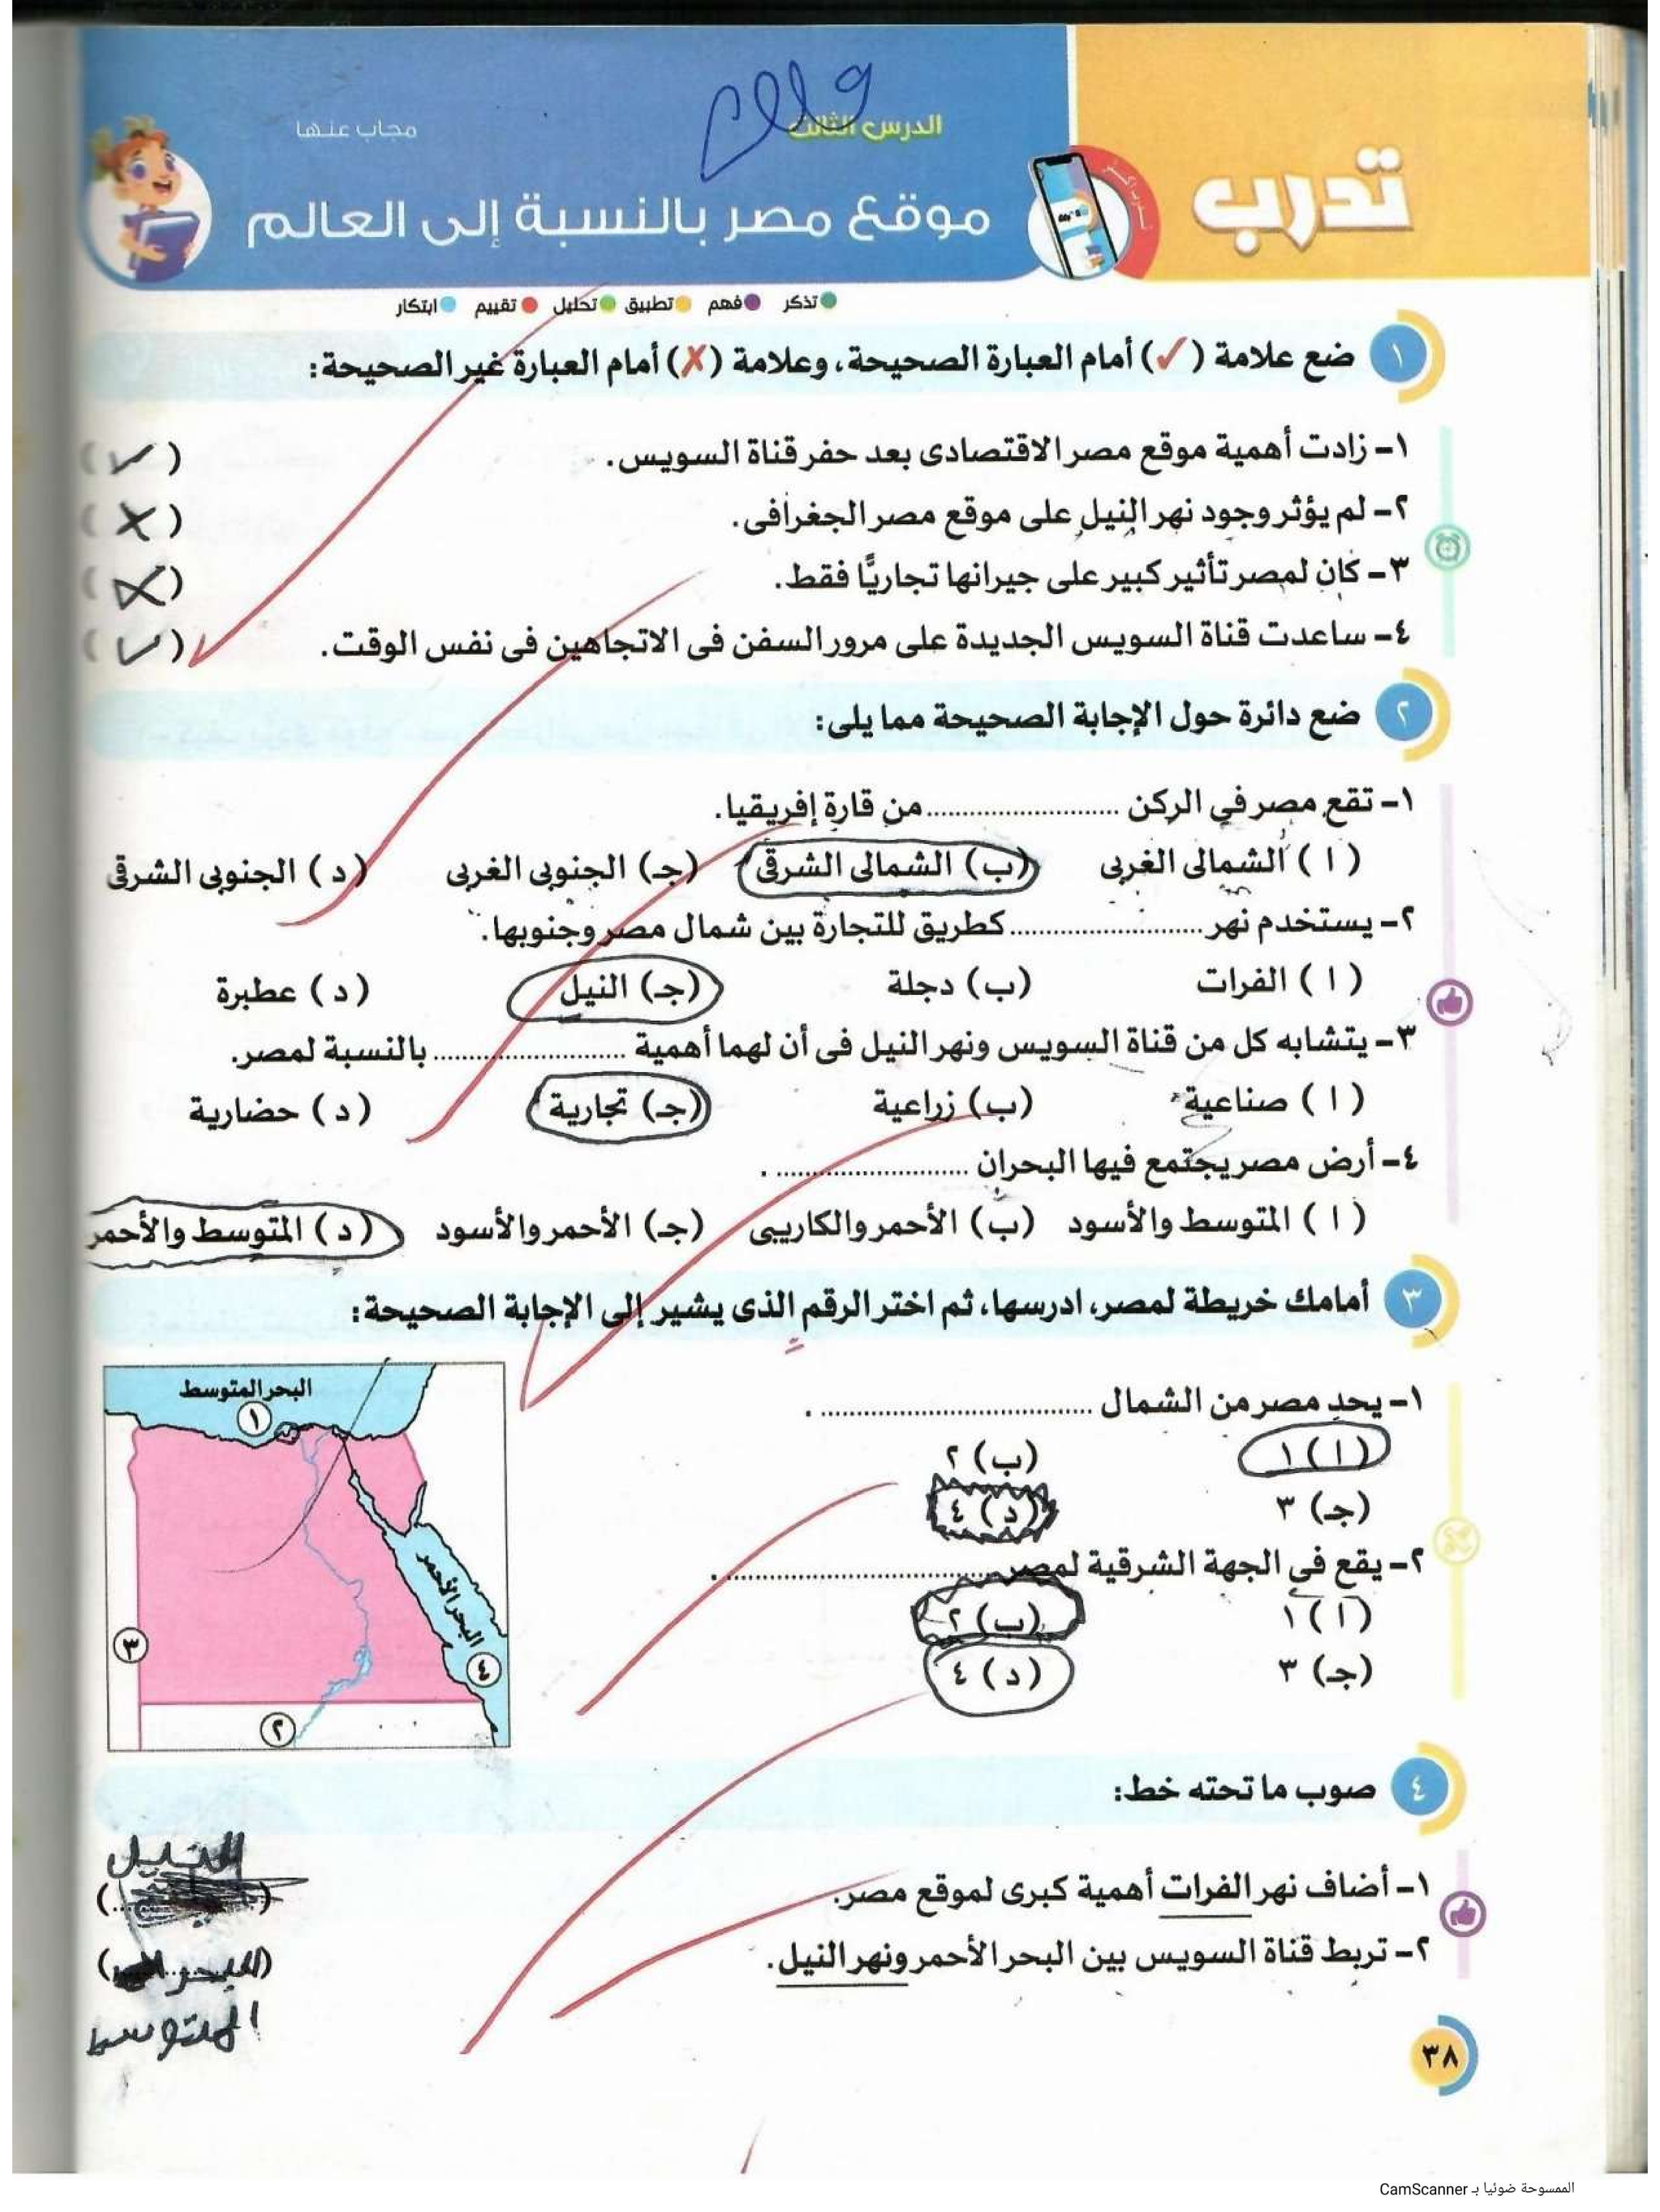 تدرب
الدرس الثالث
مجاب عنها
موقع مصر بالنسبة إلى العالم
تذكر فهم تطبيق تحليل تقييم ابتكار
١ ضع علامة (✓) أمام العبارة الصحيحة، وعلامة (✗) أمام العبارة غير الصحيحة:
١- زادت أهمية موقع مصر الاقتصادى بعد حفر قناة السويس. (✓)
٢- لم يؤثر وجود نهر النيل على موقع مصر الجغرافى. (✗)
٣- كان لمصر تأثير كبير على جيرانها تجاريًّا فقط. (✗)
٤- ساعدت قناة السويس الجديدة على مرور السفن فى الاتجاهين فى نفس الوقت. (✓)
٢ ضع دائرة حول الإجابة الصحيحة مما يلى:
١- تقع مصر في الركن .......................... من قارة إفريقيا.
( ا ) الشمالى الغربى (ب) الشمالى الشرقى (جـ) الجنوبى الغربى ( د ) الجنوبى الشرقى
٢- يستخدم نهر .......................... كطريق للتجارة بين شمال مصر وجنوبها.
( ا ) الفرات (ب) دجلة (جـ) النيل ( د ) عطبرة
٣- يتشابه كل من قناة السويس ونهر النيل فى أن لهما أهمية .......................... بالنسبة لمصر.
( ا ) صناعية (ب) زراعية (جـ) تجارية ( د ) حضارية
٤- أرض مصر يجتمع فيها البحران .......................... .
( ا ) المتوسط والأسود (ب) الأحمر والكاريبى (جـ) الأحمر والأسود ( د ) المتوسط والأحمر
٣ أمامك خريطة لمصر، ادرسها، ثم اختر الرقم الذى يشير إلى الإجابة الصحيحة:
١- يحد مصر من الشمال .................................... .
( ا ) ١ (ب) ٢
(جـ) ٣ ( د ) ٤
٢- يقع فى الجهة الشرقية لمصر .................................... .
( ا ) ١ (ب) ٢
(جـ) ٣ ( د ) ٤
البحر المتوسط
١
البحر الأحمر
٣
٤
٢
٤ صوب ما تحته خط:
١- أضاف نهر الفرات أهمية كبرى لموقع مصر.
النيل
٢- تربط قناة السويس بين البحر الأحمر ونهر النيل.
البحر
المتوسط
٣٨
الممسوحة ضوئيا بـ CamScanner